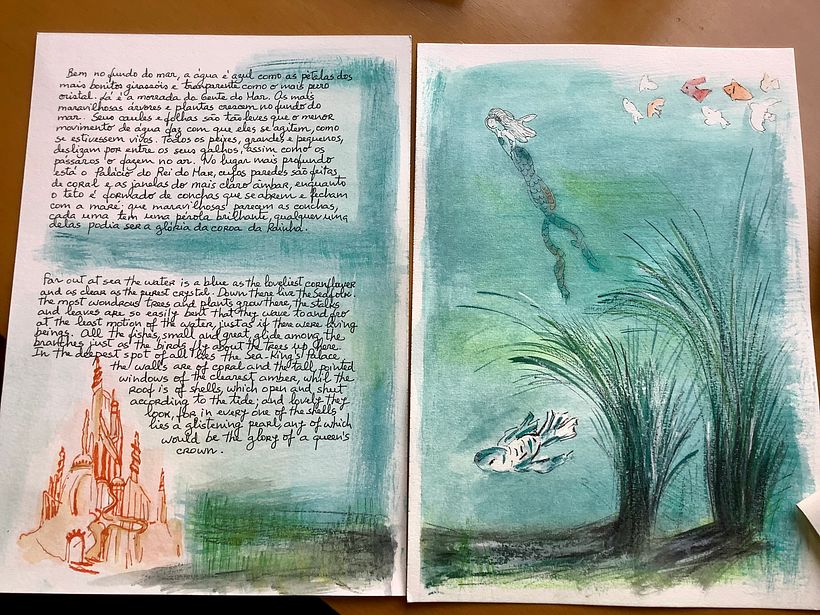 Bem no fundo do mar, a água é azul como as pétalas dos
mais bonitos girassóis e tranparente como o mais puro
cristal. Lá é a morrada da Gente do Mar. As mais
maravilhosas árvores e plantas crescem no fundo do
mar. Seus caules e folhas são tão leves que o menor
movimento de água faz com que eles se agitem, como
se estivessem vivos. Todos os peixes, grandes e pequenos,
deslizam por entre os seus galhos, assim como os
pássaros o fazem no ar. No lugar mais profundo
está o Palácio do Rei do Mar, cujas paredes são feitas
de coral e as janelas do mais claro âmbar, enquanto
o teto é formado de conchas que se abrem e fecham
com a maré: que maravilhosas parecem as conchas,
cada uma tem uma pérola brilhante, qualquer uma
delas podia ser a glória da coroa da Rainha.
Far out at sea the water is a blue as the loveliest cornflower
and as clear as the purest crystal. Down there live the Seafolk.
The most wondrous trees and plants grow there, the stalks
and leaves are so easily bent that they wave to and fro
at the least motion of the water, just as if there were living
beings. All the fishes, small and great, glide among the
branches just as the birds fly about the trees up here.
In the deepest spot of all lies the Sea-King's Palace,
the walls are of coral and the tall pointed
windows of the clearest amber, whil the
roof is of shells, which open and shut
according to the tide; and lovely they
look, for in every one of the shells
lies a glistening pearl, any of which
would be the glory of a queen's
crown.